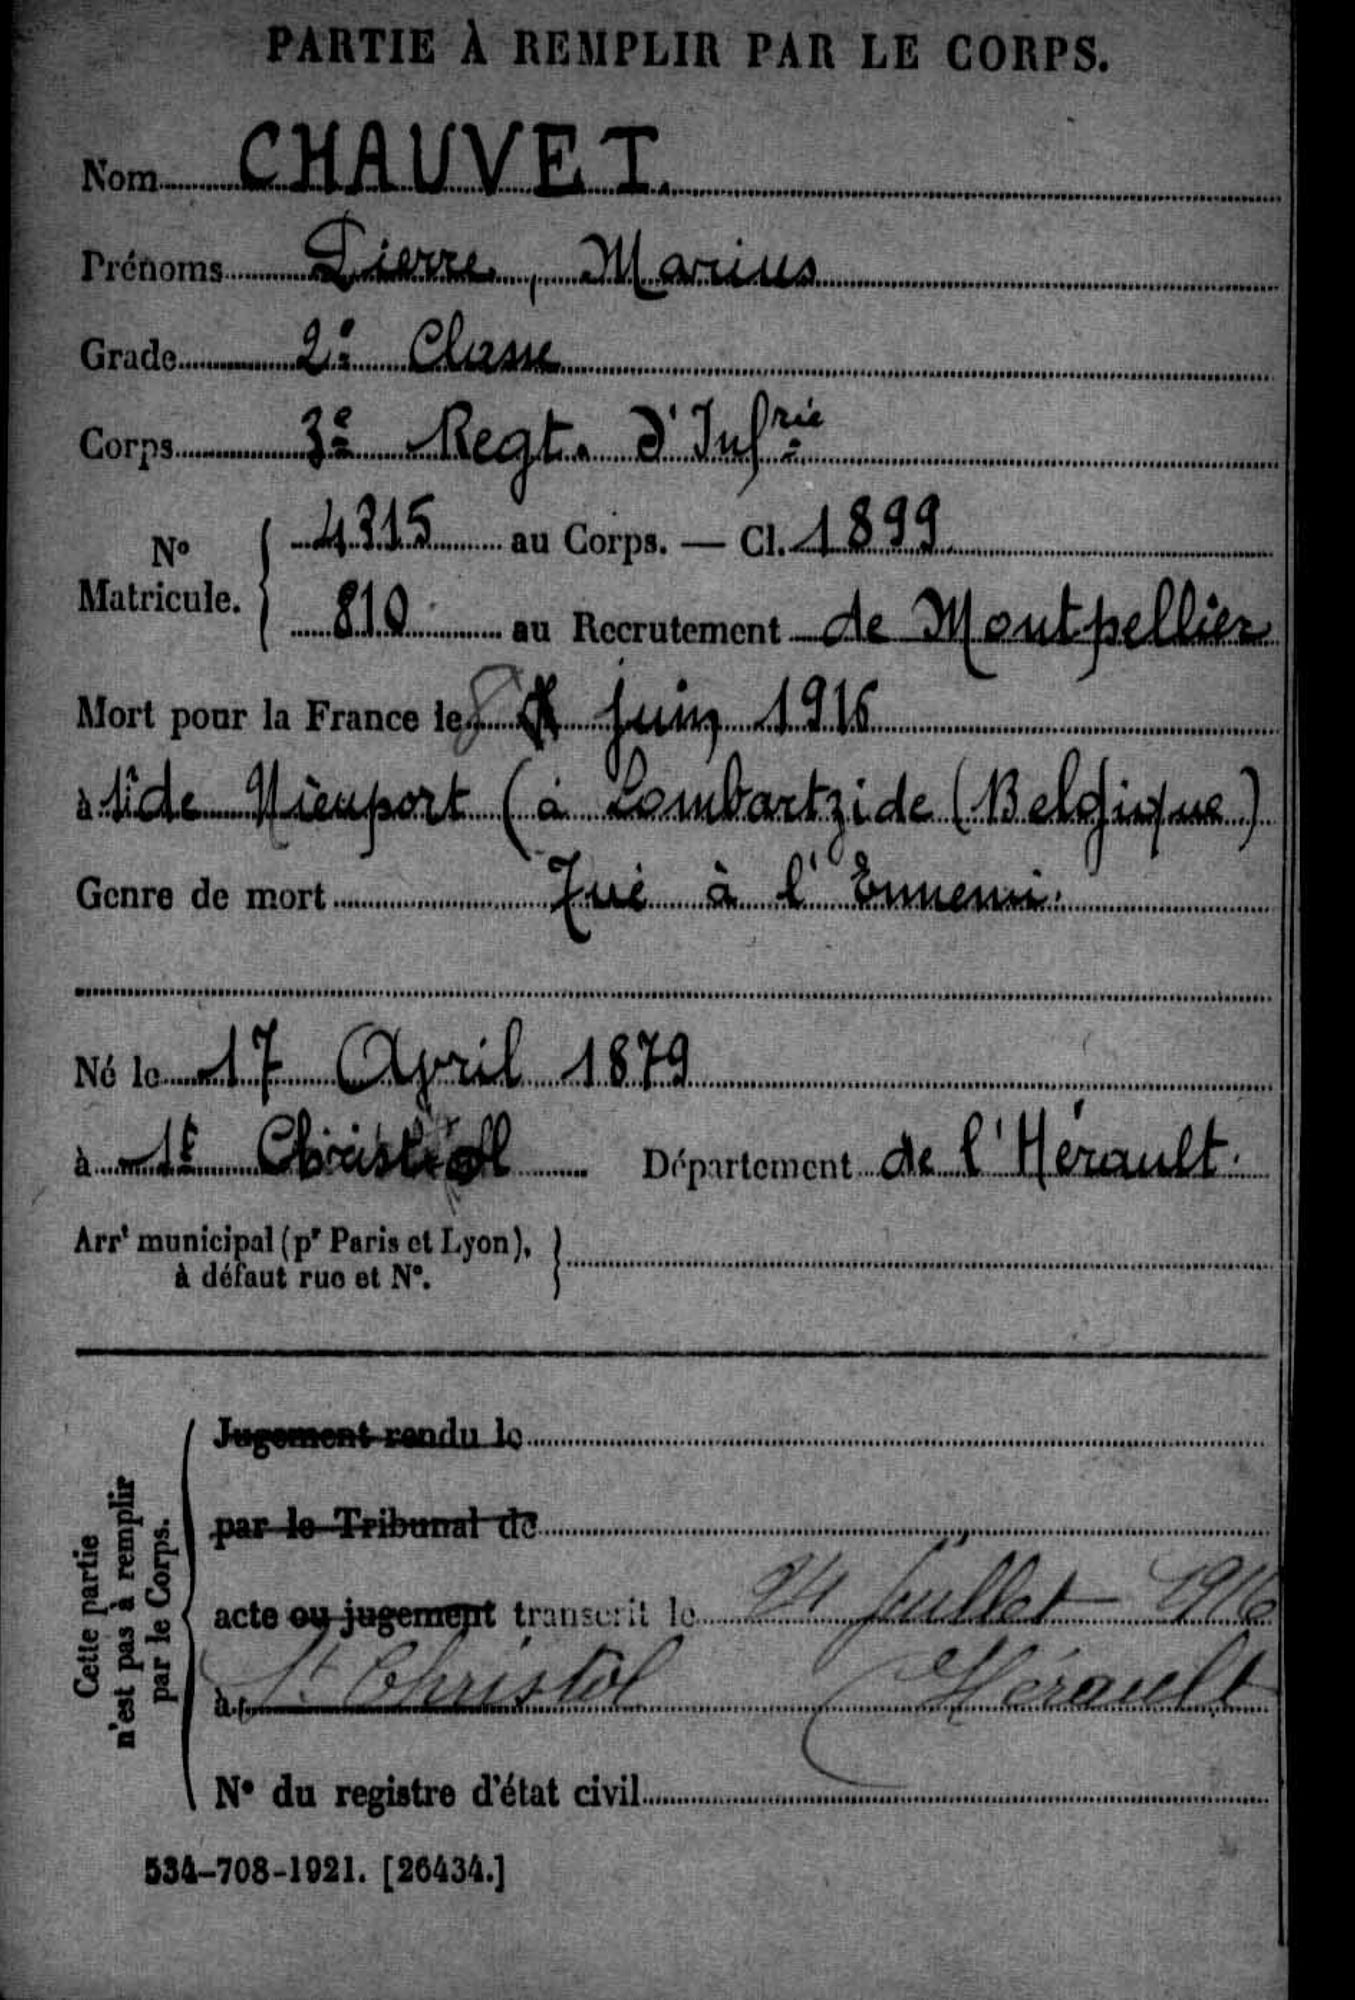 PARTIE À REMPLIR PAR LE CORPS.
Nom CHAUVET.
Prénoms Pierre, Marius
Grade 2e Classe
Corps 3e Regt. d'Infrie
No Matricule. { 4315 au Corps. — Cl. 1899
810 au Recrutement de Montpellier
Mort pour la France le 8 juin 1916
à de Nieuport (à Lombartzide (Belgique)
Genre de mort Tué à l'Ennemi.
Né le 17 April 1879
à St Christol Département de l'Hérault.
Arrt municipal (pr Paris et Lyon), à défaut rue et No. }
Cette partie n'est pas à remplir par le Corps.
Jugement rendu le
par le Tribunal de
acte ou jugement transcrit le 24 Juillet 1916
à St Christol (Hérault
No du registre d'état civil
534-708-1921. [26434.]